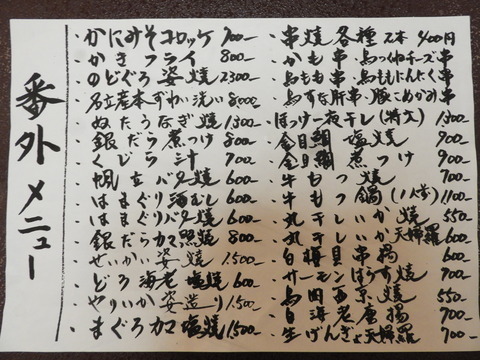 番外メニュー
・かにみそコロッケ 700-
・かきフライ 800-
・のどぐろ姿焼 2300-
・ずわい洗い 8000-
・ぬたうなぎ焼 1300-
・銀だら煮つけ 800-
・くじら汁 700-
・帆立バター焼 600-
・はまぐり酒むし 600-
・はまぐりバター焼 600-
・銀だらカマ照焼 800-
・せいかい姿焼 1500-
・どろ海老塩焼 600-
・やりいか姿造り 1500-
・まぐろカマ塩焼 1500-
・串焼各種 2本 400円
・かも串・鳥つくねチーズ串
・鳥もも串・鳥ももにんにく串
・鳥すな肝串・豚こめかみ串
・ほっけ一夜干し(特大) 1300-
・金目鯛塩焼 900-
・金目鯛煮つけ 900-
・牛もつ焼 700-
・牛もつ鍋(1人前) 1100-
・丸干しいか焼 550-
・丸干しいか天婦羅 600-
・白梅貝串揚 600-
・サーモンはらす焼 700-
・鳥肉西京焼 550-
・白海老唐揚 700-
・生げんぎょ天婦羅 700-